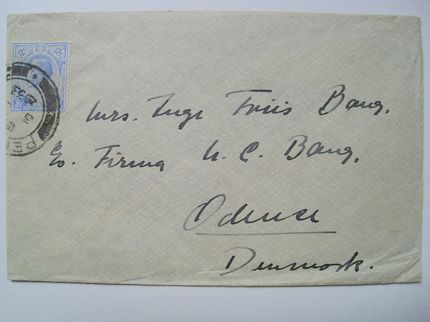 Mrs. Inge Friis Bang.
Co. Firma H. C. Bang.
Odense
Denmark.